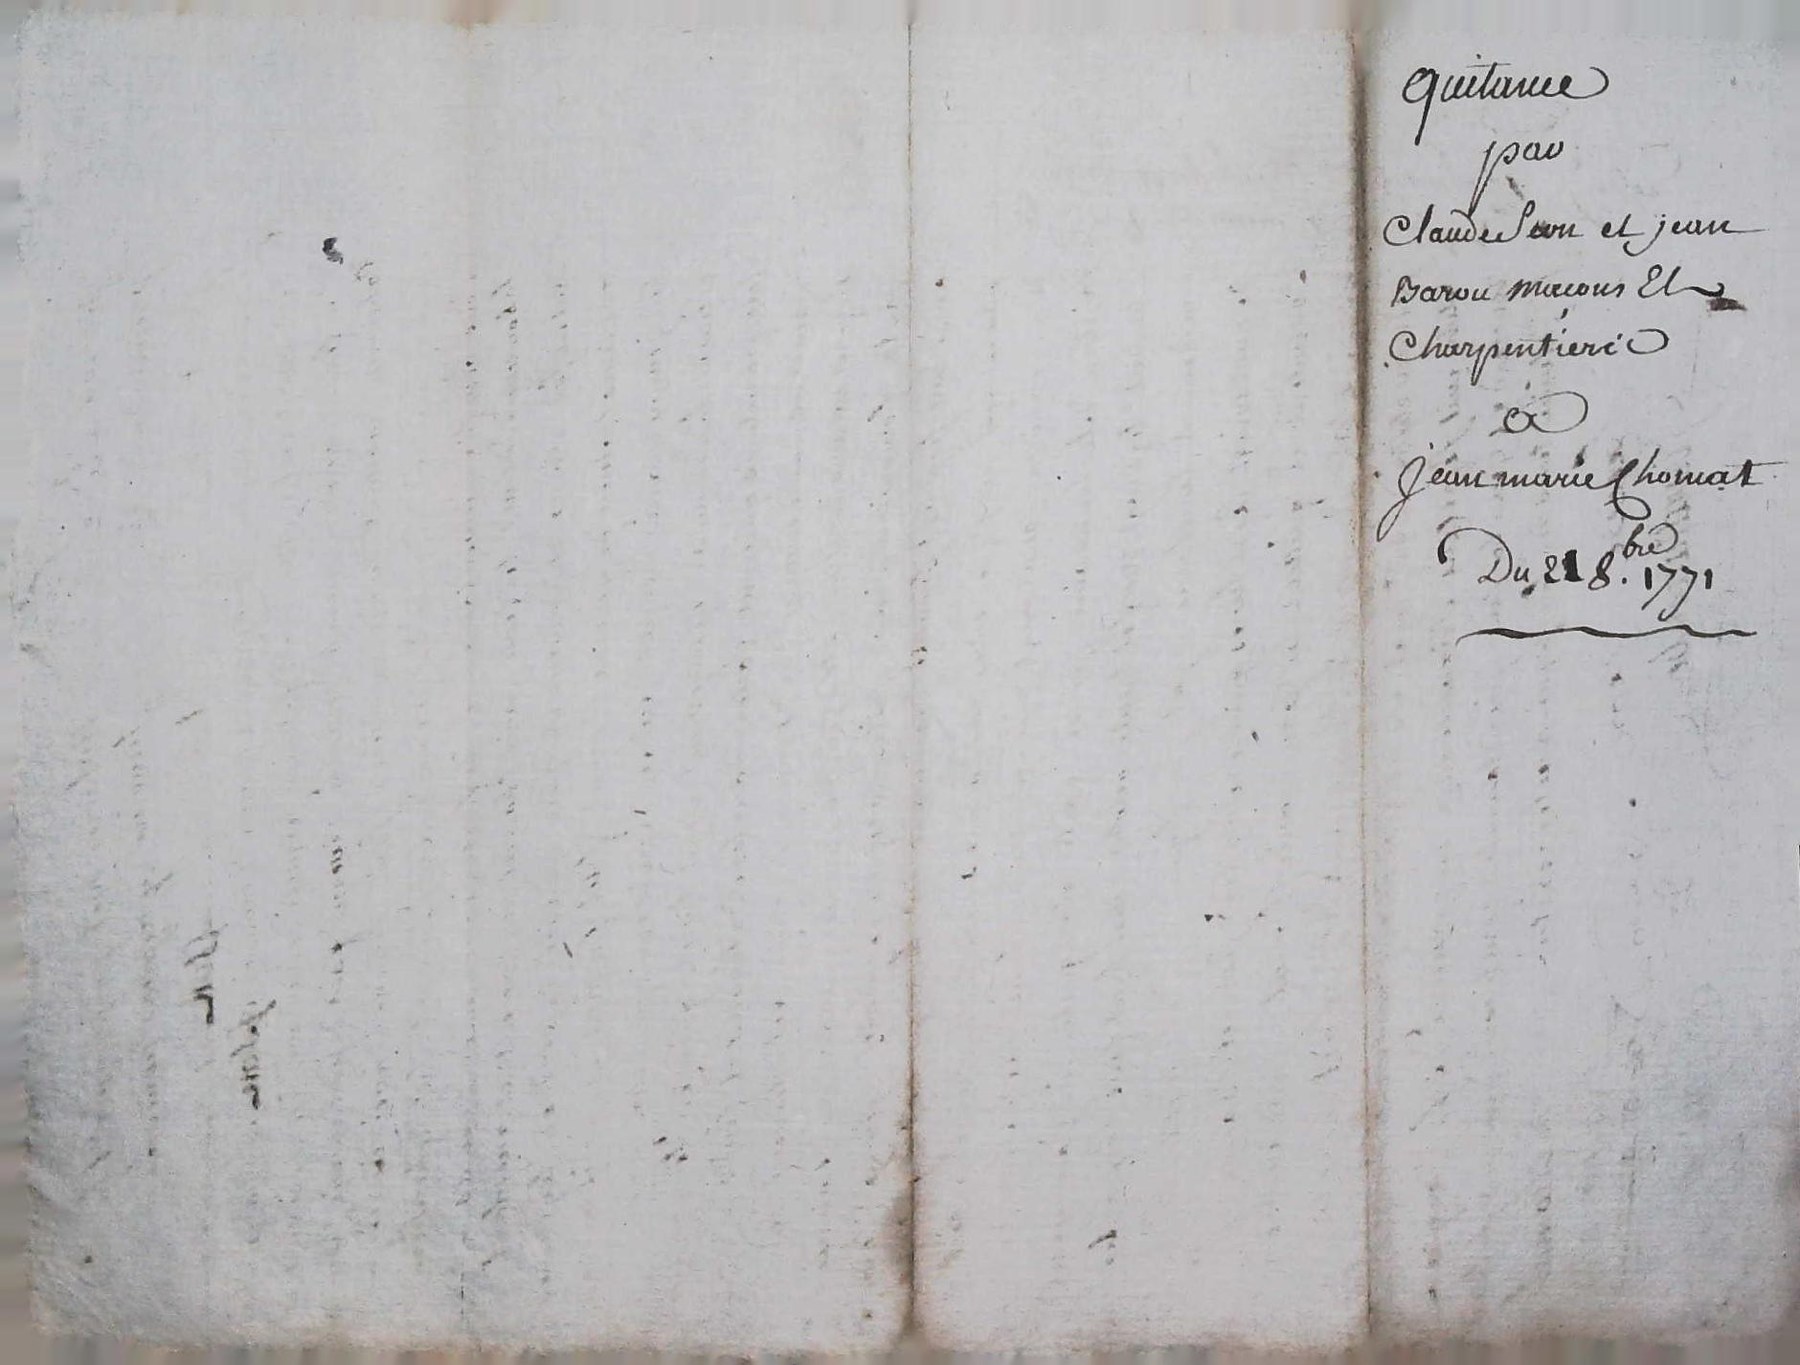 quitance
par
Claude Seon et jean
Barou macons Et
Charpentiers
a
jean marie Chomat
Du 21 8.bre 1771